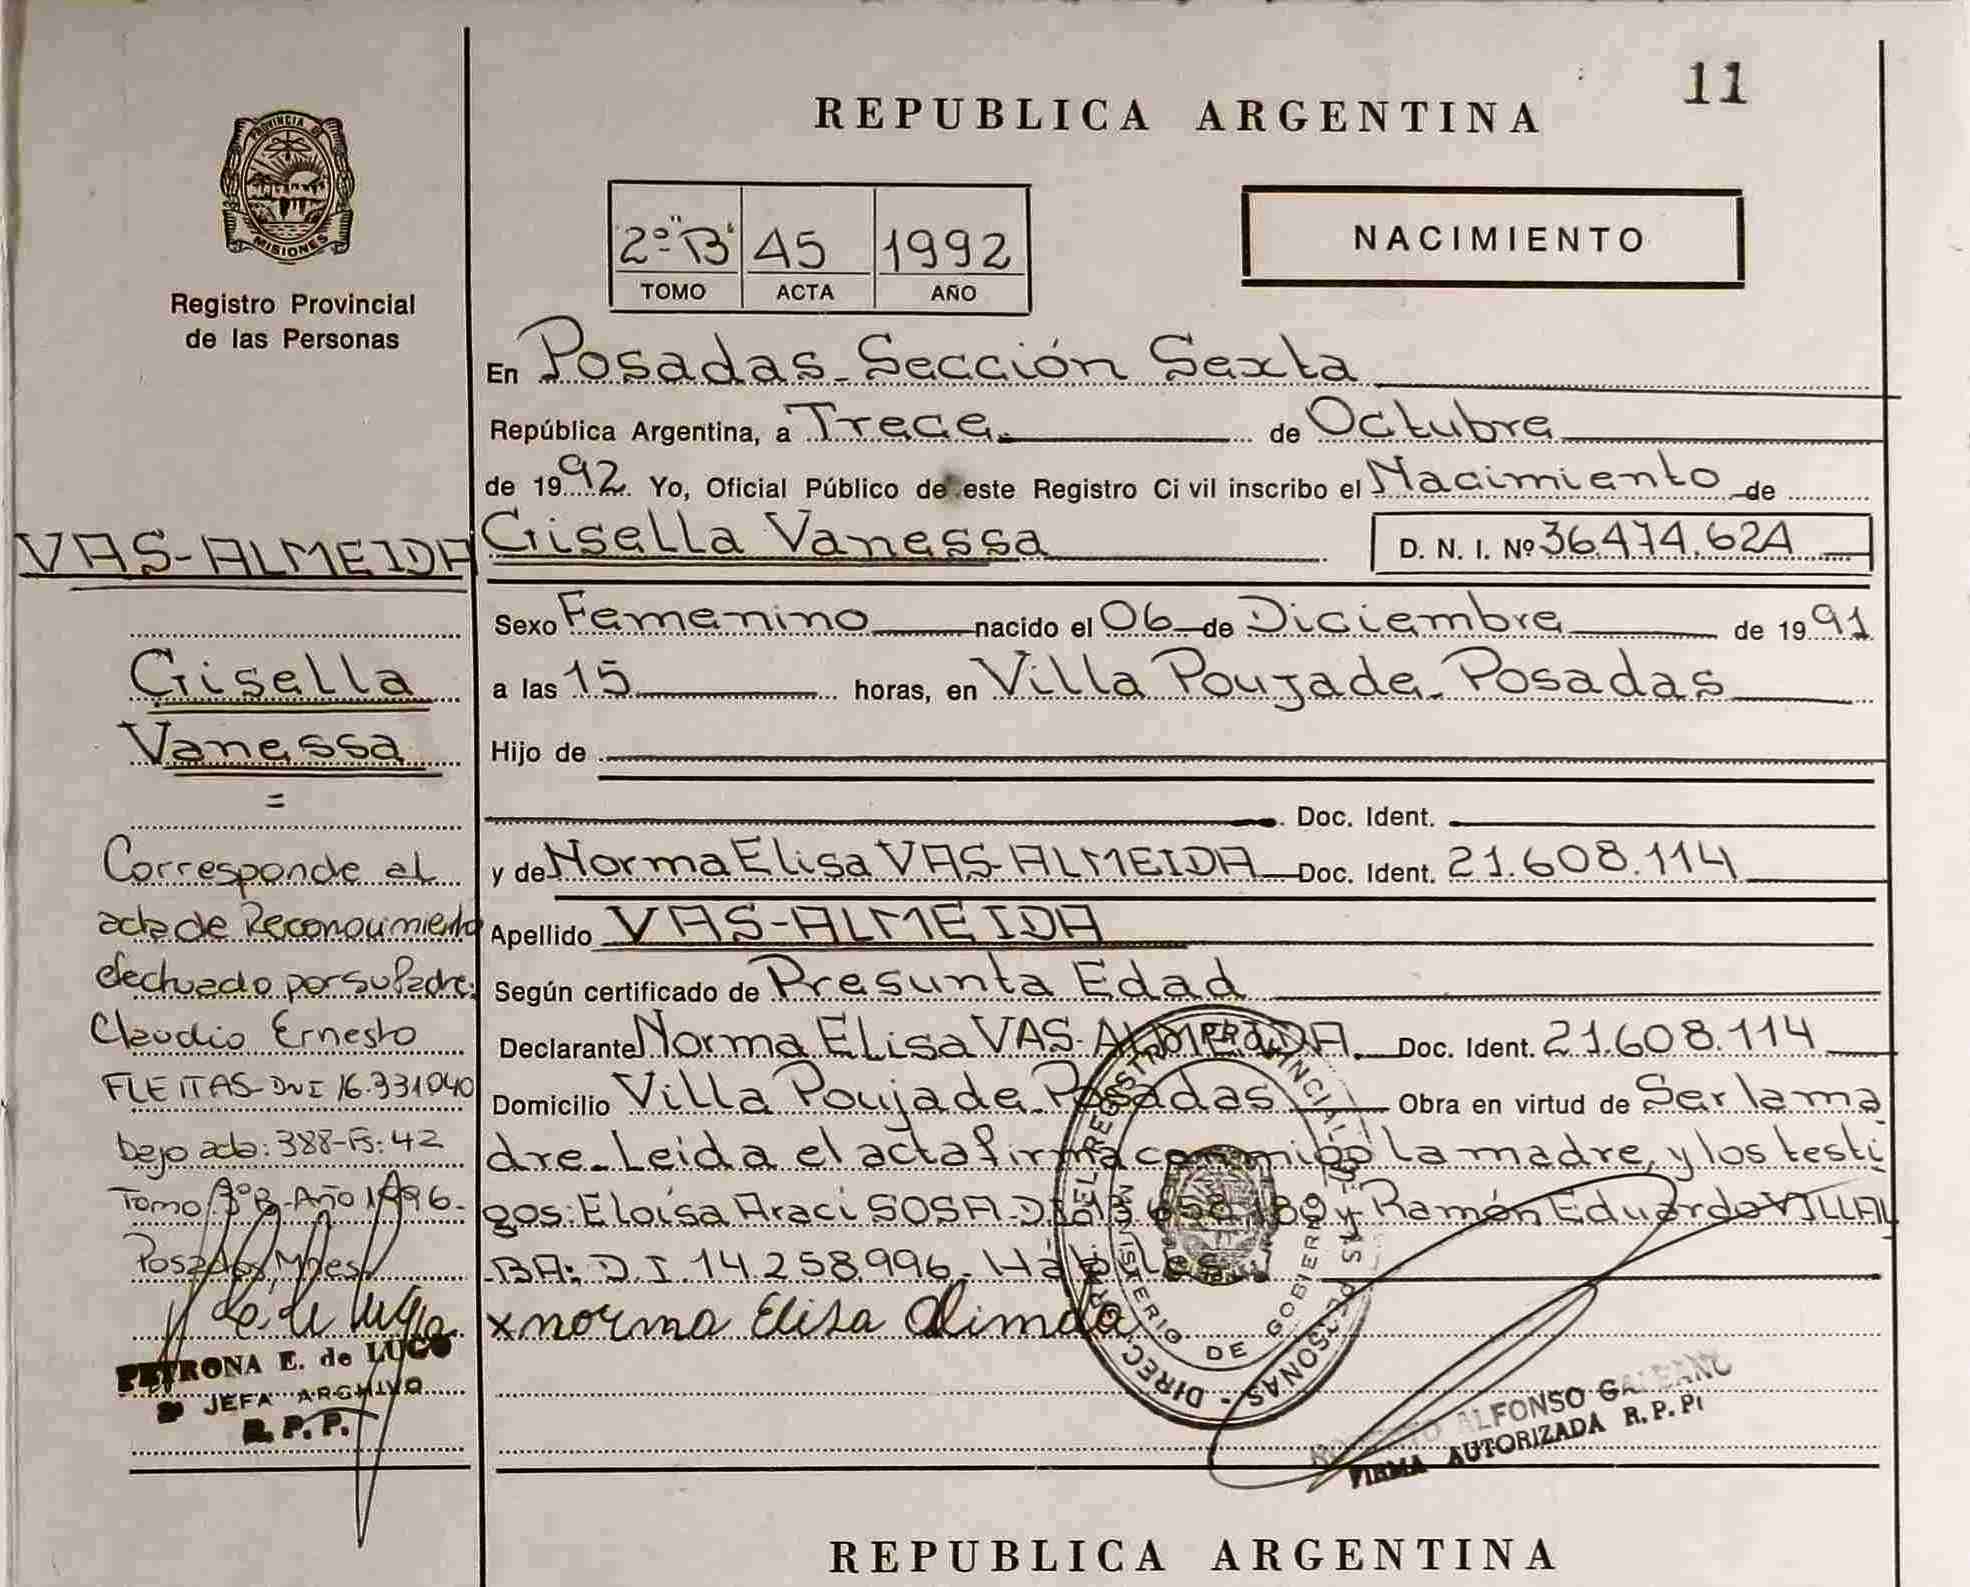 11
REPUBLICA ARGENTINA
PROVINCIA DE
MISIONES
Registro Provincial
de las Personas
2º "B" 45 1992
TOMO ACTA AÑO
NACIMIENTO
En Posadas - Sección Sexta
República Argentina, a Trece de Octubre
de 1992. Yo, Oficial Público de este Registro Civil inscribo el Nacimiento de
Gisella Vanessa D. N. I. Nº 36.474.624
Sexo Femenino nacido el 06 de Diciembre de 1991
a las 15 horas, en Villa Poujade - Posadas
Hijo de
Doc. Ident.
y de Norma Elisa VAS-ALMEIDA Doc. Ident. 21.608.114
Apellido VAS-ALMEIDA
Según certificado de Presunta Edad
Declarante Norma Elisa VAS-ALMEIDA. Doc. Ident. 21.608.114
Domicilio Villa Poujade - Posadas Obra en virtud de Ser la ma
dre - Leida el acta firma conmigo La madre, y los testi
gos: Eloísa Araci SOSA - y Ramón Eduardo VILLAL
BA: D.I. 14.258.996 - Hábiles
x norma Elisa
VAS-ALMEIDA
Gisella
Vanessa
=
Corresponde al
acta de Reconocimiento
efectuado por su Padre:
Claudio Ernesto
FLEITAS - DNI 16.331040
bajo acta: 388 - Fs: 42
Tomo 3º B - Año 1996.
Posadas, Mnes
PETRONA E. de LUGO
JEFA ARCHIVO
R. P. P.
DIREC. DEL REGISTRO PROVINCIAL DE LAS PERSONAS
MINISTERIO DE GOBIERNO
ALFONSO GALEANO
FIRMA AUTORIZADA R. P. P.
REPUBLICA ARGENTINA